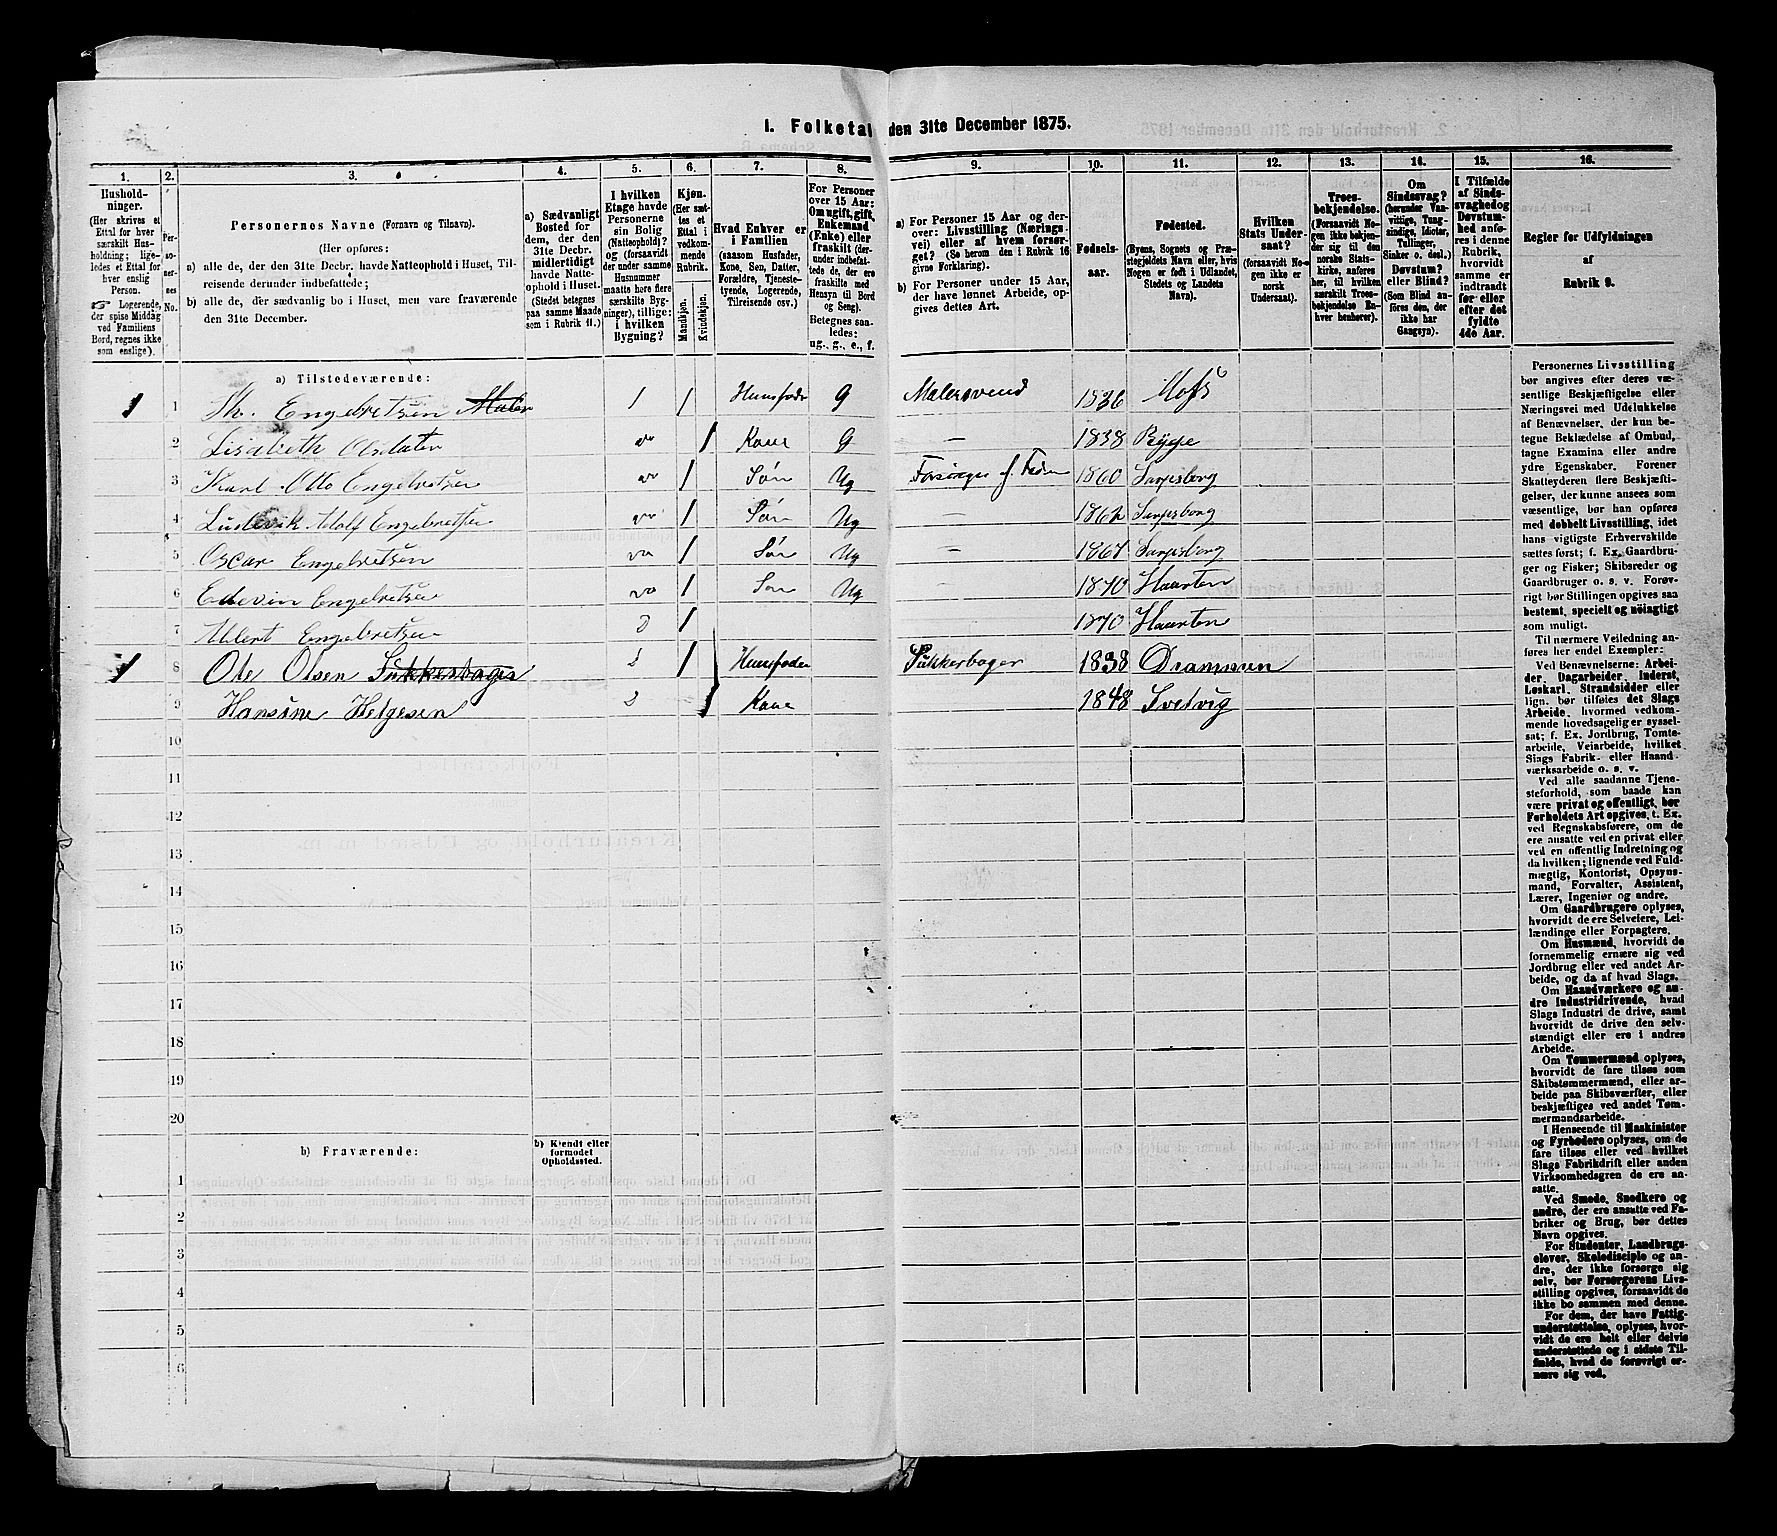 I. Folketal den 31te December 1875.
1. 2. 3. 4. 5. 6. 7. 8. 9. 10. 11. 12. 13. 14. 15. 16.
Hushold-
ninger.
(Her skrives et
Ettal for hver
særskilt Hus-
holdning; lige-
ledes et Ettal for
hver enslig
Person.
☞ Logerende,
der spise Middag
ved Familiens
Bord, regnes ikke
som enslige).
Per-
so-
ner-
nes
No.
Personernes Navne (Fornavn og Tilnavn).
(Her opføres:
a) alle de, der den 31te Decbr. havde Natteophold i Huset, Til-
reisende derunder indbefattede;
b) alle de, der sædvanlig bo i Huset, men vare fraværende
den 31te December.
a) Sædvanligt
Bosted for
dem, der den
31te Decbr.
midlertidigt
havde Natte-
ophold i Huset.
(Stedet betegnes
paa samme Maade
som i Rubrik 11.)
I hvilken
Etage havde
Personerne
sin Bolig
(Natteophold)?
og (forsaavidt
der under samme
Husnummer
maatte høre flere
særskilte Byg-
ninger), tillige:
i hvilken
Bygning?
Kjøn.
(Her sæt-
tes et
Ettal i
vedkom-
mende
Rubrik.
Mandkjøn.
Kvindekjøn.
Hvad Enhver er
i Familien
(saasom Husfader,
Kone, Søn, Datter,
Forældre, Tjeneste-
tyende, Logerende,
Tilreisende osv.)
For Personer
over 15 Aar:
Om ugift, gift,
Enkemand
(Enke) eller
fraskilt (der-
under indbefat-
tede de, der ere
fraskilte med
Hensyn til Bord
og Seng).
Betegnes saa-
ledes:
ug., g., e., f.
a) For Personer 15 Aar og der-
over: Livsstilling (Nærings-
vei) eller af hvem forsør-
get? (Se herom den i Rubrik 16
givne Forklaring).
b) For Personer under 15 Aar,
der have lønnet Arbeide, op-
gives dettes Art.
Fødsels-
aar.
Fødested.
(Byens, Sognets og Præ-
stegjeldets Navn eller, hvis
Nogen er født i Udlandet,
Stedets og Landets
Navn).
Hvilken
Stats Under-
saat?
(forsaavidt No-
gen ikke er
norsk
Undersaat).
Troes-
bekjendelse.
(Forsaavidt No-
gen ikke bekjen-
der sig til den
norske Stats-
kirke, anføres
her, til hvilken
særskilt Troes-
bekjendelse En-
hver henhører).
Om
Sindssvag?
(herunder Van-
vittige, Tung-
sindige, Idioter,
Tullinger,
Sinker o. desl.).
Døvstum?
eller Blind?
(Som Blind an-
føres den, der
ikke har
Gangsyn).
I Tilfælde
af Sinds-
svaghed og
Døvstum-
hed anfø-
res i denne
Rubrik,
hvorvidt
samme er
indtraadt
før eller
efter det
fyldte
4de Aar.
Regler for Udfyldningen
af
Rubrik 9.
a) Tilstedeværende:
1 1 Th. Engebretsen Maler 1 1 Huusfader G Malersvend 1836 Mofs
2 Lisabeth Olsdater " 1 Kone G — 1838 Rygge
3 Karl Otto Engebretsen " 1 Søn Ug Forsørges af Faderen 1860 Sarpsborg
4 Ludevik Adolf Engebretsen " 1 Søn Ug — 1862 Sarpsborg
5 Oscar Engebretsen " 1 Søn Ug — 1867 Sarpsborg
6 Edevin Engebretsen " 1 Søn Ug — 1870 Haarten
7 Albert Engebretsen 2 1 1870 Haarten
1 8 Ole Olsen Sukkerbager 2 1 Huusfader Sukkerbager 1838 Drammen
9 Hansine Helgesen 2 1 Kone 1848 Svelvig
10
11
12
13
14
15
16
17
18
19
20
b) Fraværende:
b) Kjendt eller
formodet
Opholdssted.
1
2
3
4
5
6
Personernes Livsstilling
bør angives efter deres væ-
sentlige Beskjæftigelse eller
Næringsvei med Udelukkelse
af Benævnelser, der kun be-
tegne Beklædelse af Ombud,
tagne Examina eller andre
ydre Egenskaber. Forener
Skatteyderen flere Beskjæfti-
gelser, der kunne ansees som
væsentlige, bør han opføres
med dobbelt Livsstilling, idet
hans vigtigste Erhvervskilde
sættes først; f. Ex. Gaardbru-
ger og Fisker; Skibsreder og
Gaardbruger o. s. v. Forøv-
rigt bør Stillingen opgives saa
bestemt, specielt og nøiagtigt
som muligt.
Til nærmere Veiledning an-
føres her endel Exempler:
Ved Benævnelserne: Arbei-
der, Dagarbeider, Inderst,
Løskarl, Strandsidder eller
lign. bør tilføies det Slags
Arbeide, hvormed vedkom-
mende hovedsagelig er syssel-
sat; f. Ex. Jordbrug, Tomte-
arbeide, Veiarbeide, hvilket
Slags Fabrik- eller Haand-
værksarbeide o. s. v.
Ved alle saadanne Tjene-
steforhold, som baade kan
være privat og offentligt, bør
Forholdets Art opgives, t. Ex.
ved Regnskabsførere, om de
ere ansatte ved en privat eller
ved en offentlig Indretning og
da hvilken; lignende ved Fuld-
mægtig, Kontorist, Opsyns-
mand, Forvalter, Assistent,
Lærer, Ingeniør og andre.
Om Gaardbrugere oplyses,
hvorvidt de ere Selveiere, Lei-
lændinge eller Forpagtere.
Om Husmænd, hvorvidt de
fornemmelig ernære sig ved
Jordbrug eller ved andet Ar-
beide, og da af hvad Slags.
Om Haandværkere og an-
dre Industridrivende, hvad
Slags Industri de drive, samt
hvorvidt de drive den selv-
stændigt eller ere i andres
Arbeide.
Om Tømmermænd oplyses,
hvorvidt de fare tilsøs som
Skibstømmermænd, eller ar-
beide paa Skibsværfter, eller
beskjæftiges ved andet Tøm-
mermandsarbeide.
I Henseende til Maskinister
og Fyrbødere oplyses, om de
fare tilsøs eller ved hvilket
Slags Fabrikdrift eller anden
Virksomhedsgren de ere an-
satte.
Ved Smede, Snedkere og
andre, der ere ansatte ved Fa-
briker og Brug, bør dettes
Navn opgives.
For Studenter, Landbrugs-
elever, Skoledisciple og an-
dre, der ikke forsørge sig
selv, bør Forsørgerens Livs-
stilling opgives, forsaavidt de
ikke bo sammen med denne.
For dem, der have Fattig-
understøttelse, oplyses, hvor-
vidt de ere helt eller delvis
understøttede og i sidste Til-
fælde, hvad de forøvrigt er-
nære sig ved.